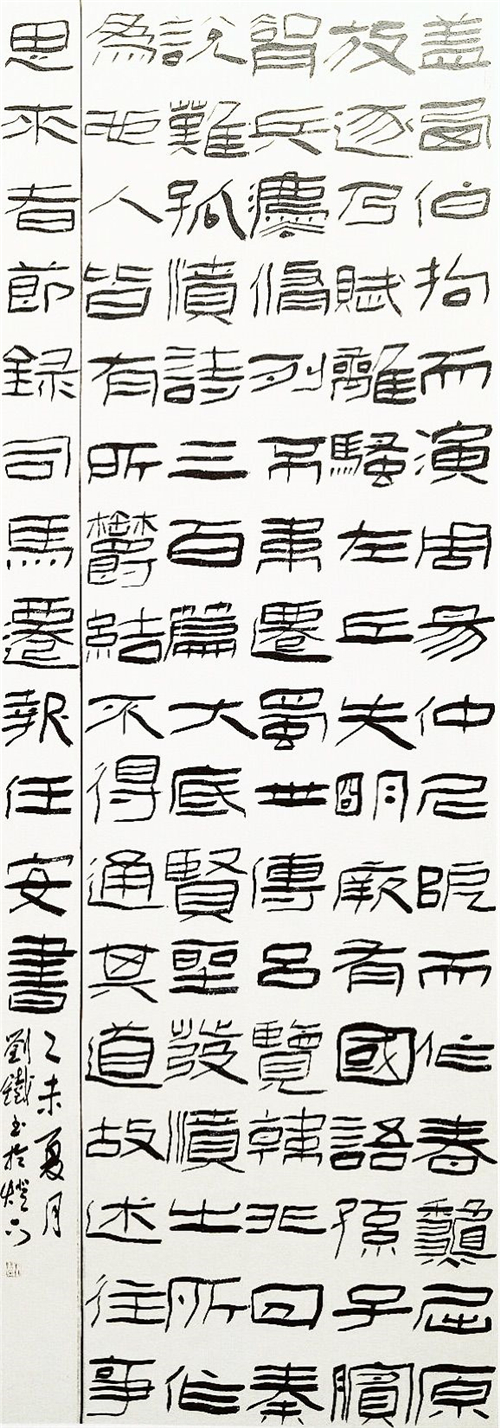 盖西伯拘而演周易仲尼阨而作春龝屈原
放逐乃賦離騷左丘失朙厥有國語孫子臏
兵灋脩列不韋遷蜀世傳呂覽韓非囚秦
説難孤憤詩三百篇大底賢聖發憤之所作
為也人皆有所鬱結不得通其道故述往事
思來者節録司馬遷報任安書
乙未夏月
劉鐵書於燈下